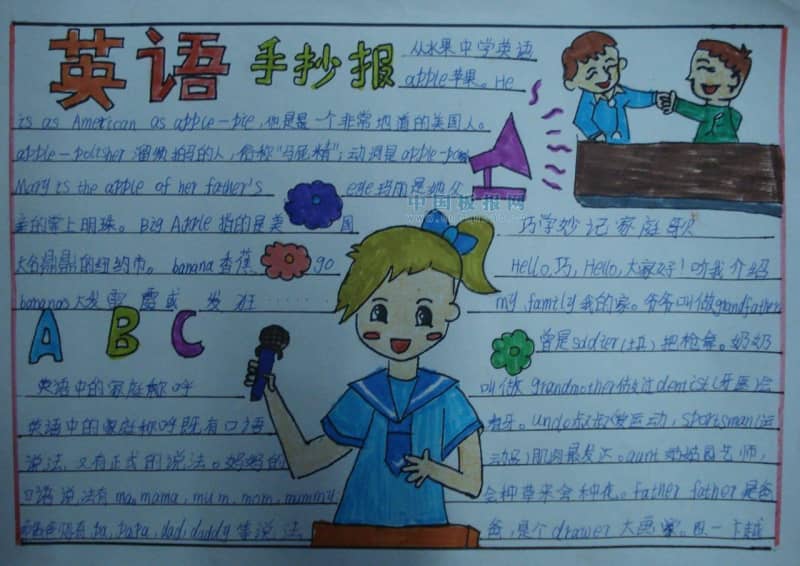 英语 手抄报
从水果中学英语
apple苹果。He
is as American as apple-pie,他是一个非常地道的美国人。
apple-polisher 溜须拍马的人,俗称"马屁精";动词是apple-
Mary is the apple of her father's eye玛丽是她父
亲的掌上明珠。Big Apple 指的是美国
大名鼎鼎的纽约市。banana香蕉 go
bananas大发雷霆或发狂……
A B C
英语中的家庭称呼
英语中的家庭称呼既有口语
说法,又有正式的说法。妈妈的
口语说法有ma,mama,mum,mom,mummy
爸爸口语有pa,papa,dad,daddy等说法
中国板报网
巧学妙记家庭歌
Hello,巧,Hello,大家好!听我介绍
my family我的家。爷爷叫做grandfather
曾是soldier(士兵)把枪拿。奶奶
叫做grandmother做过dentist(牙医)会
看牙。uncle叔叔爱运动,sportsman(运
动员)肌肉最发达。aunt姑姑园艺师,
会种草来会种花。father father是爸
爸,是个drawer大画家。